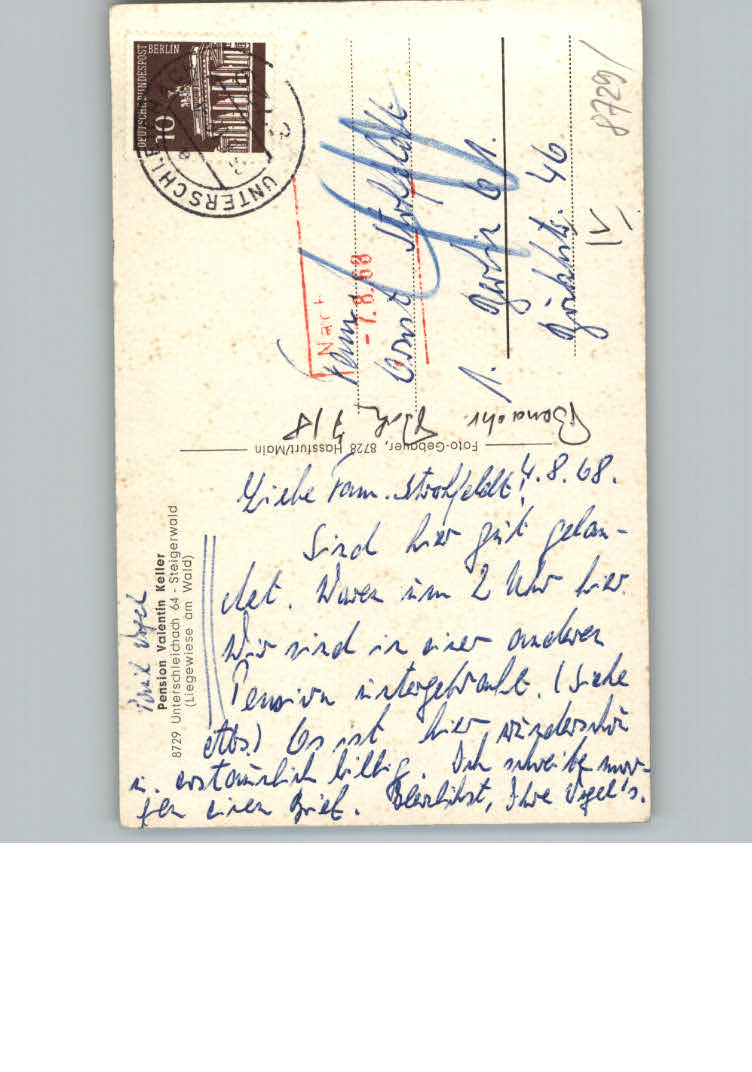 Emil Vogel
Pension Valentin Keller
8729 Unterschleichach 64 - Steigerwald
(Liegewiese am Wald)
4.8.68.
Liebe Fam. Strohfeldt!
Sind hier gut gelan-
det. Waren um 2 Uhr hier.
Wir sind in einer anderen
Pension untergebracht. (Siehe
Abs.) Es ist hier wunderschön
u. erstaunlich billig. Ich schreibe mor-
gen einen Brief. Herzlichst, Ihre Vogel's.
Foto-Gebauer, 8728 Hassfurt/Main
DEUTSCHE BUNDESPOST BERLIN
10
UNTERSCHLEICHACH
Nach
-7.8.68
Familie
Ernst Strohfeldt
1. Berlin 61.
46.
8729/
IV
Benachr.
7/8